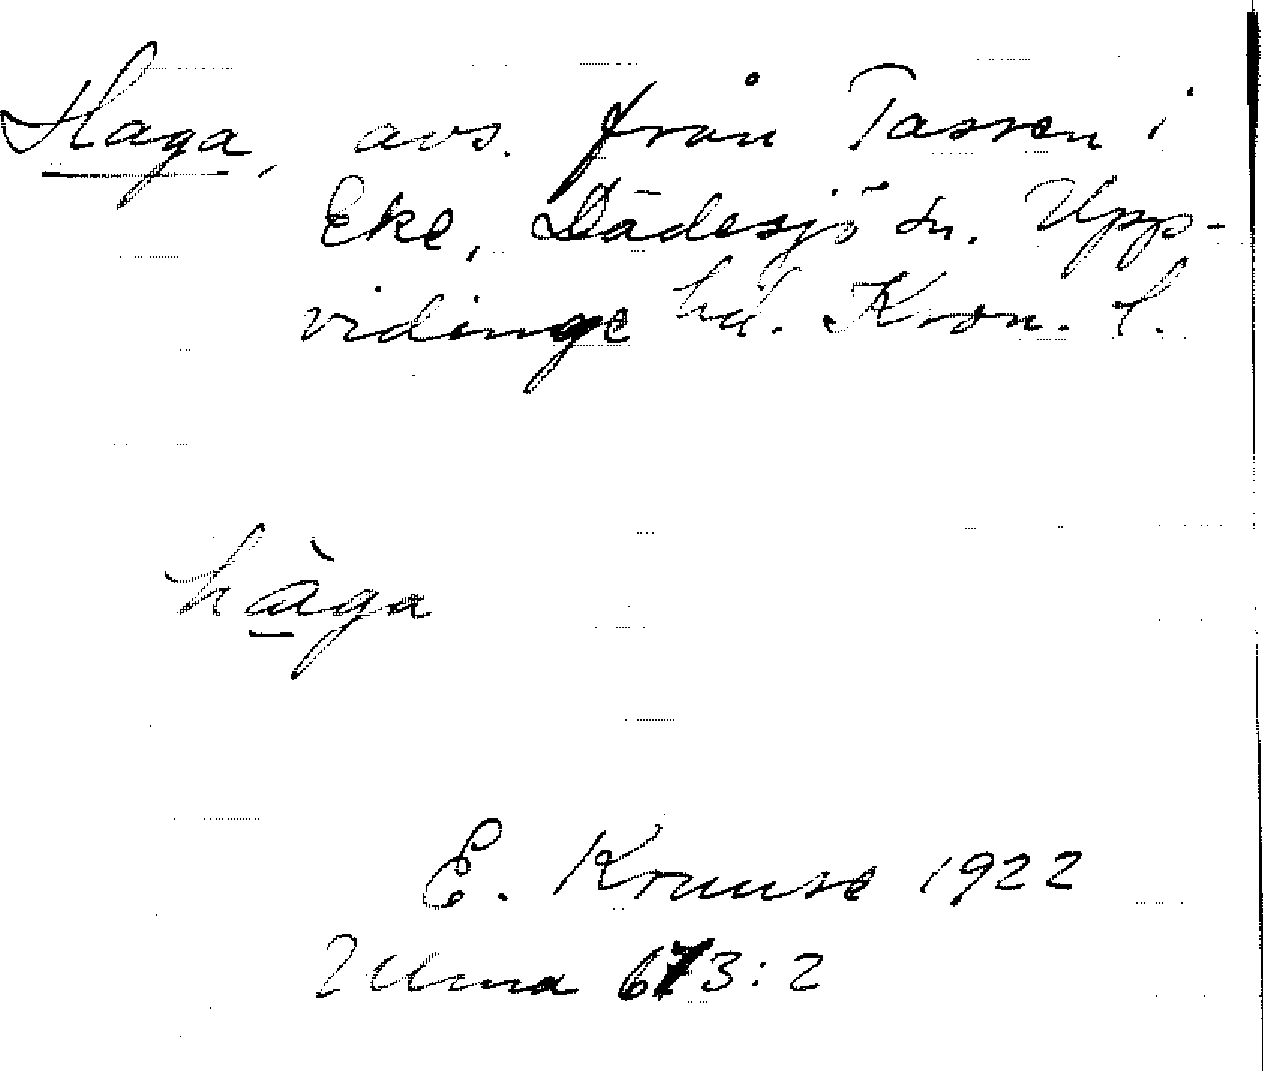 Haga, avs. från Tasren i
Eke, Dädesjö sn. Upp-
vidinge hd. Kron. l.
hàga
E. Kruuse 1922
Ulma 673:2